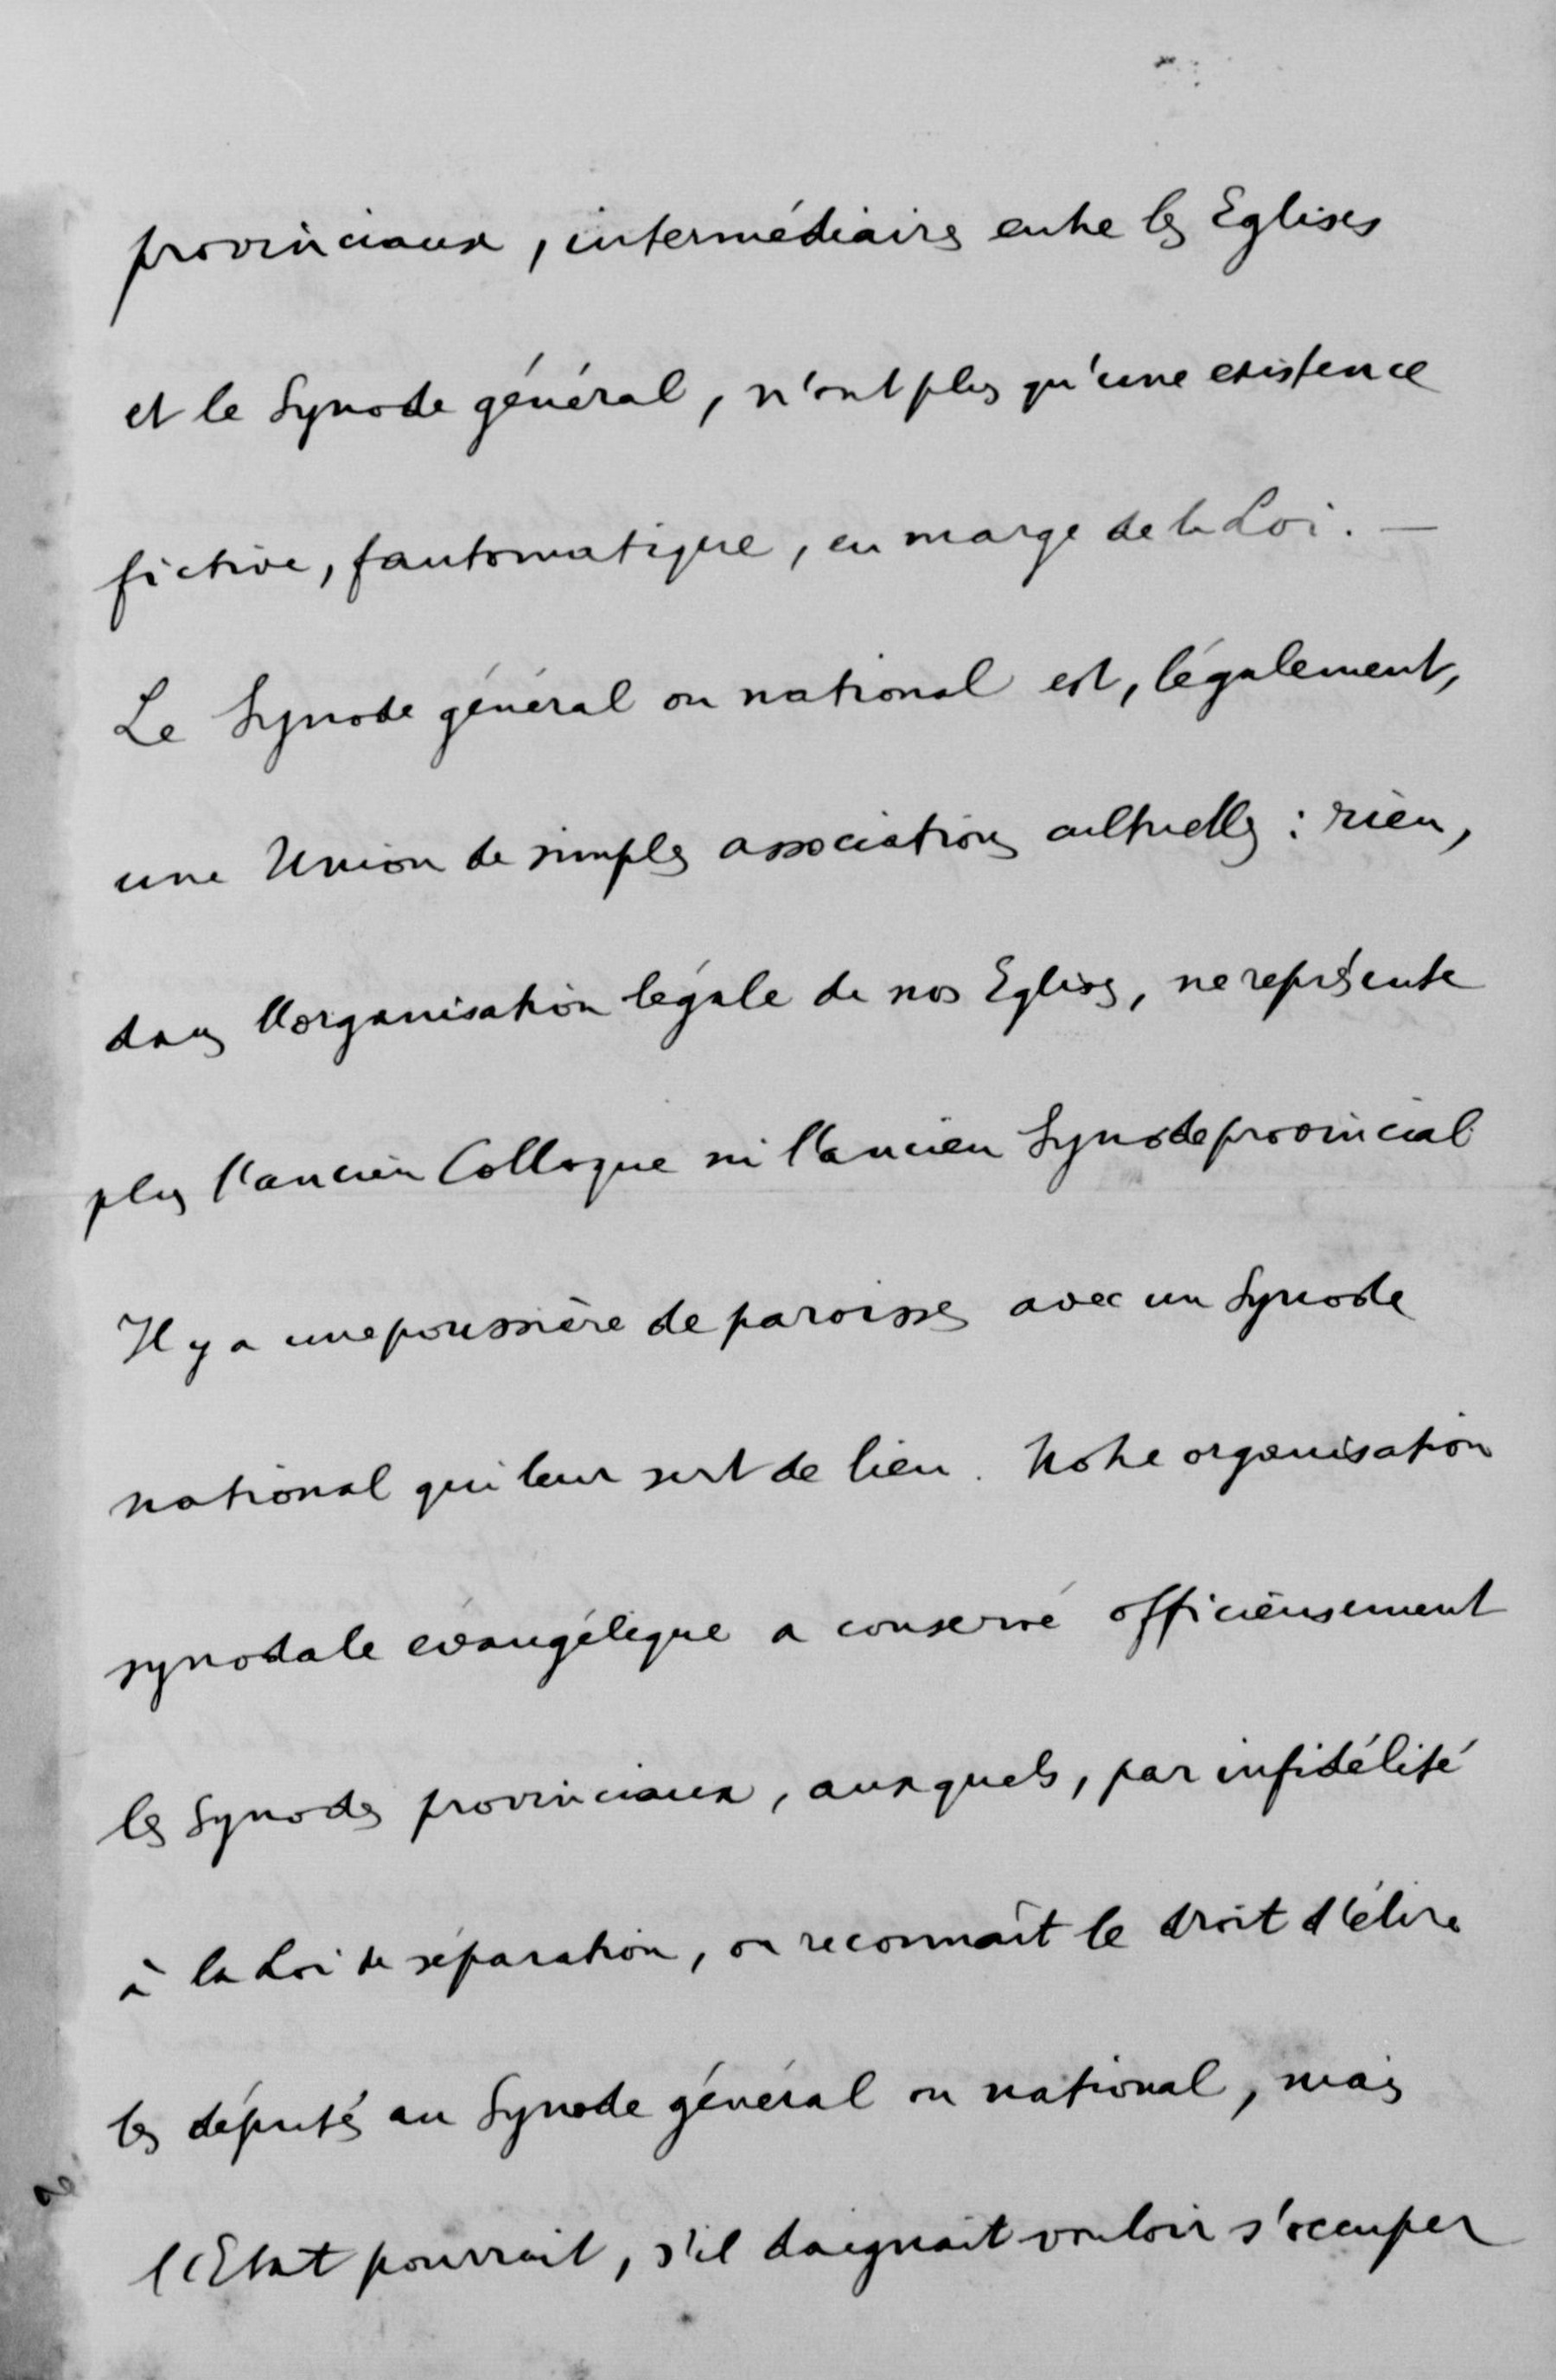 provinciaux, intermédiaires entre les Eglises
et le Synode général, n'ont plus qu'une existence
fictive, fantomatique, en marge de la Loi. —
Le Synode général ou national est, légalement,
une Union de simples associations cultuelles : rien,
dans l'organisation légale de nos Eglises, ne représente
plus l'ancien Colloque ni l'ancien Synode provincial
Il y a une poussière de paroisses avec un Synode
national qui leur sert de lien. Notre organisation
synodale évangélique a conservé officieusement
les Synodes provinciaux, auxquels, par infidélité
à la Loi de séparation, on reconnaît le droit d'élire
les députés au Synode général ou national, mais
l'Etat pourrait, s'il daignait vouloir s'occuper